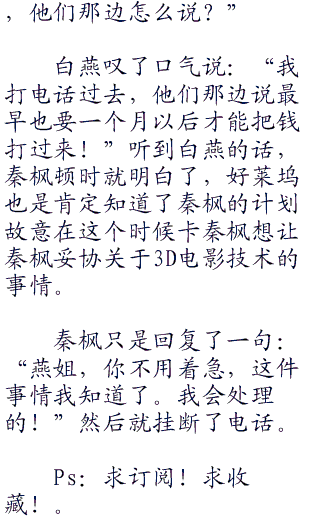 ，他们那边怎么说？”
白燕叹了口气说：“我
打电话过去，他们那边说最
早也要一个月以后才能把钱
打过来！”听到白燕的话，
秦枫顿时就明白了，好莱坞
也是肯定知道了秦枫的计划
故意在这个时候卡秦枫想让
秦枫妥协关于3D电影技术的
事情。
秦枫只是回复了一句：
“燕姐，你不用着急，这件
事情我知道了。我会处理
的！”然后就挂断了电话。
Ps：求订阅！求收
藏！。